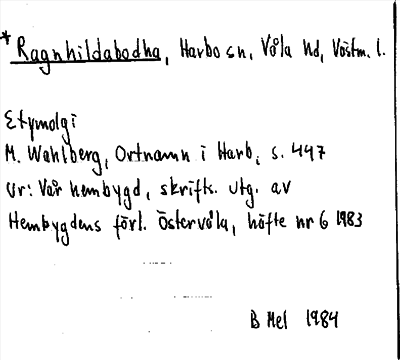 *Ragnhildabodha, Harbo sn, Våla hd, Västm. l.
Etymolgi
M. Wahlberg, Ortnamn i Harb, s. 447
Ur: Vår hembygd, skrifts. utg. av
Hembygdens förl. Östervåla, häfte nr 6 1983
B Mel 1984